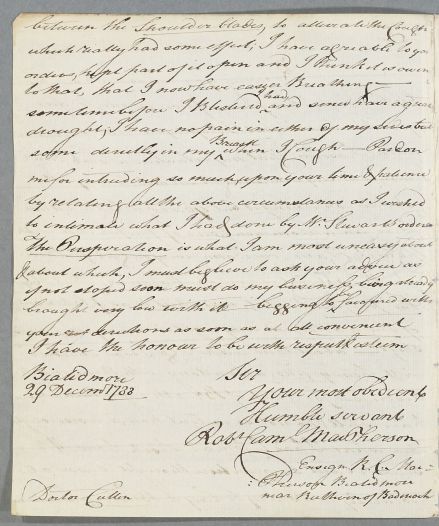 between the Shoulder blades, to alleviate the Cough
which really had some effect, I have agreable to your
orders, kept part of it open and I think it is owen
to that, that I now have easyer Breathing —
sometime befor I Blisterd I had and since have a great
drought, I have no pain in either of my sides but
some directly in my Breast when I Cough — Pardon
me for intruding so much upon your time & patience
by relating all the above circumstances as I wished
to intimate what I had done by Mr. Stewart's orders
The Perspiration is what I am most uneasy about
& about which, I must beg leive to ask your advice as
if not stoped soon must do my business, being already
brought very low with it — begging to be favored with
your directions as soon as at all convenient
I have the honour to be with respect & esteem
Bialidmore
29 Decemr. 1788
Sir
Your most obedient
Humble servant
Robt. Caml. MacPherson
Ensign R. C. Mac-
:Pherson Bialidmore
near Ruthven of Badenoch
Doctor Cullen